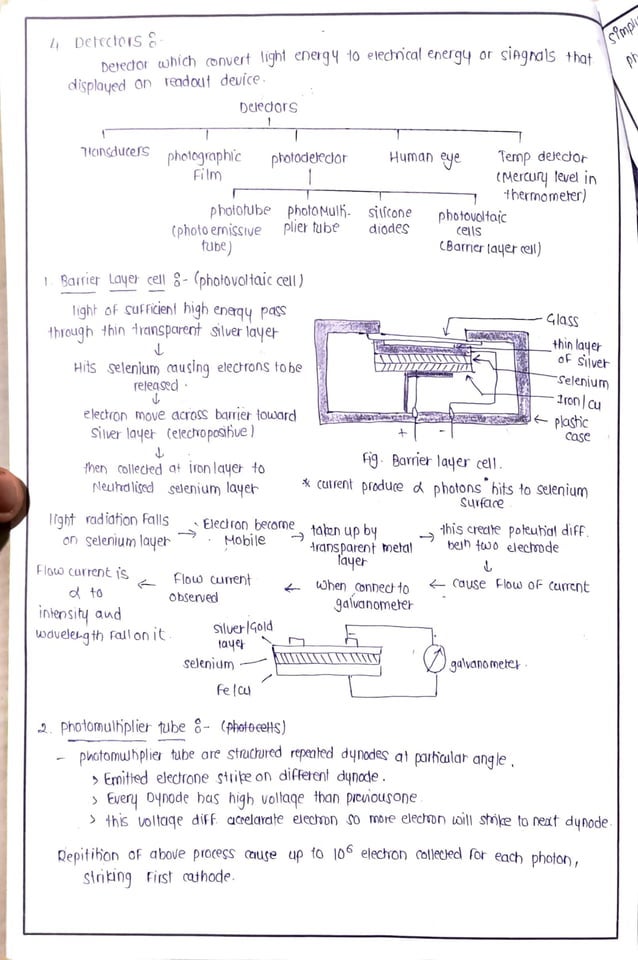 4 Detectors :-
Detector which convert light energy to electrical energy or singnals that
displayed on readout device.
Detectors
Transducers
photographic
Film
photodetector
Human eye
Temp detector
(Mercury level in
thermometer)
phototube
(photoemissive
tube)
photoMulti-
plier tube
silicone
diodes
photovoltaic
cells
(Barrier layer cell)
1. Barrier Layer cell :- (photovoltaic cell)
light of sufficient high energy pass
through thin transparent silver layer
↓
Hits selenium causing electrons to be
released.
↓
electron move across barrier toward
silver layer (electropositive)
↓
then collected at iron layer to
Neutralised selenium layer
Glass
thin layer
of silver
selenium
Iron/cu
plastic
case
+ -
Fig. Barrier layer cell.
* current produce α photons hits to selenium
surface.
light radiation Falls
on selenium layer
→ Electron become
Mobile
→ taken up by
transparent metal
layer
→ this create potential diff.
betn two electrode
↓
← cause Flow of current
← When connect to
galvanometer
← Flow current
observed
Flow current is
α to
intensity and
wavelength Fall on it.
silver/Gold
layer
selenium
Fe/cu
galvanometer.
2. photomultiplier tube :- (photocells)
- photomultiplier tube are structured repeated dynodes at particular angle.
> Emitted electrone strike on different dynode.
> Every Dynode has high voltage than previousone.
> this voltage diff. acrelarate electron so more electron will strike to next dynode.
Repitition of above process cause up to 10⁶ electron collected for each photon,
striking First cathode.